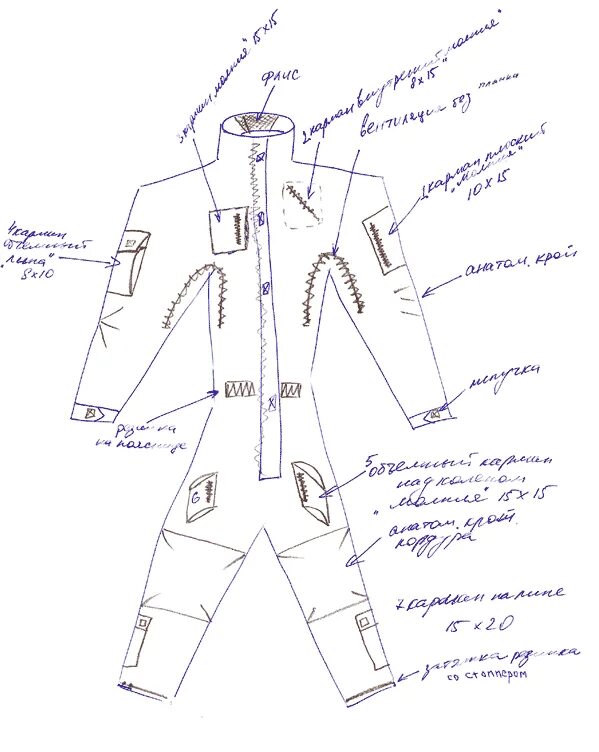 3 карман "молния" 15х15
флис
2 карман внутренний "молния"
8х15
вентиляция без планки
1 карман плоский
"молния"
10х15
4 карман
объемный
"липа"
8х10
анатом. крой
липучка
резинка
на пояснице
6
5 объемный карман
над коленом
"молния" 15х15
анатом. крой.
кордура
7 карман на липе
15х20
затяжка резинка
со стоппером